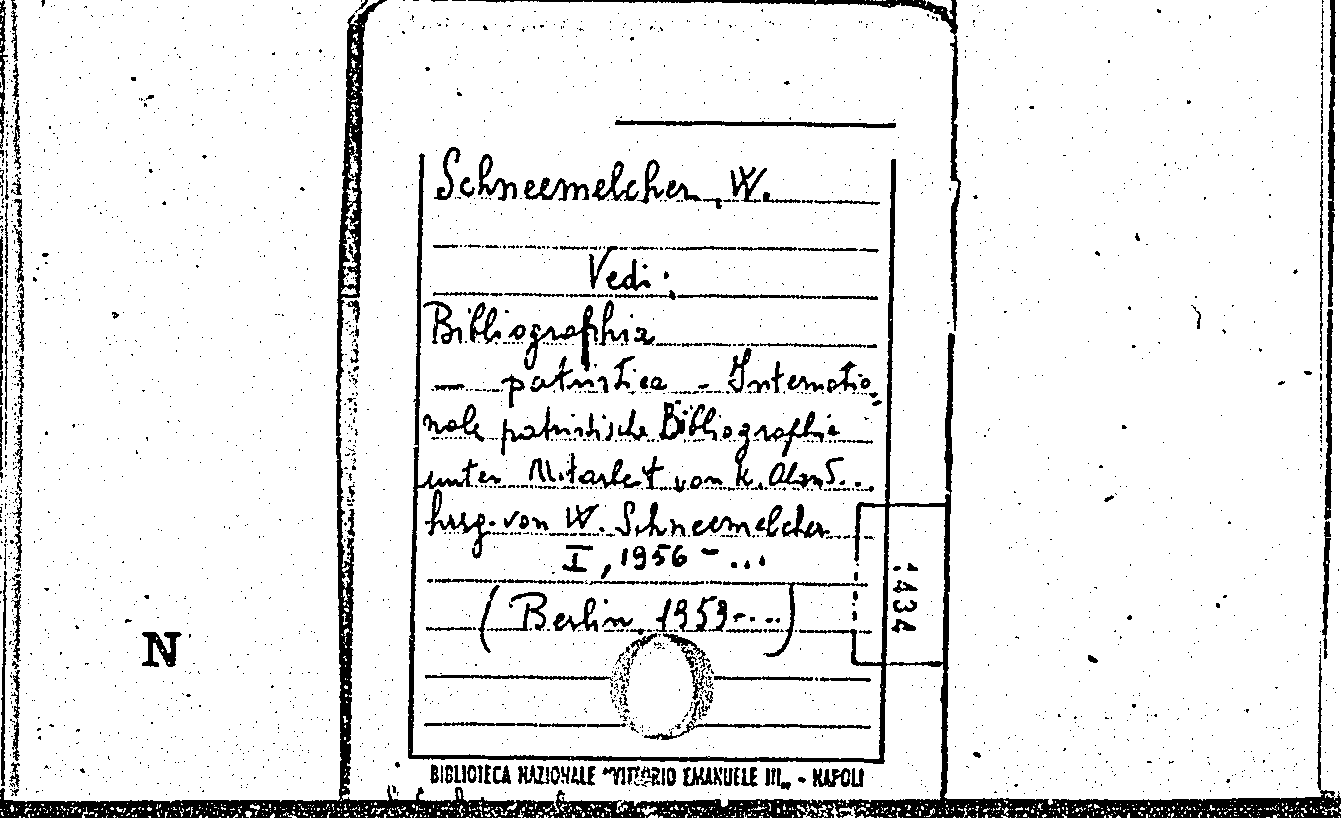 Schneemelcher, W.
Vedi:
Bibliographia
— patristica - Internatio„
nale patristische Bibliographie
unter Mitarbeit von K. Aland...
hrsg. von W. Schneemelcher
I, 1956 - ...
(Berlin, 1959-...)
1434
N
BIBLIOTECA NAZIONALE "VITTORIO EMANUELE III„ - NAPOLI